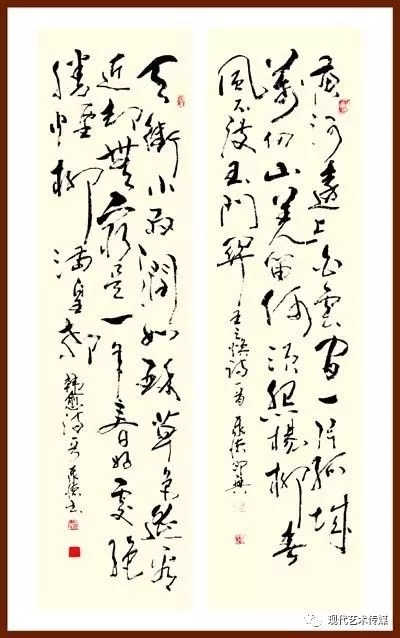 黄河遠上白雲间一片孤城
萬仞山羌笛何須怨楊柳春
風不度玉門関
王之渙詩一首
天街小雨潤如酥草色遥看
近却無最是一年春好處絕
勝煙柳满皇都
韓愈詩
现代艺术传媒